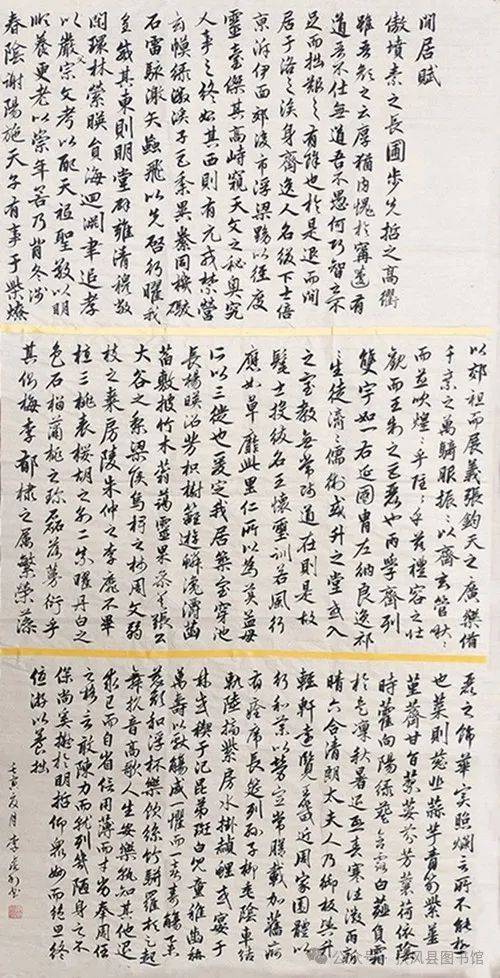 閒居賦
傲墳素之長圃步先哲之高衢
雖吾顏之云厚猶内愧於甯蘧有
道吾不仕無道吾不愚何巧智之不
足而拙艱之有餘也於是退而閒
居于洛之涘身齊逸人名綴下士倍
京泝伊面郊後市浮梁黝以徑度
靈臺傑其高峙窺天文之秘奥究
人事之終始其西則有元戎禁營
玄幙綠徽谿子巨黍異絭同機礮
石雷駭激矢蝱飛以先啓行曜我
皇威其東則明堂辟雍清穆敞
閑環林縈映圓海迴淵聿追孝
以嚴父宗文考以配天祗聖敬以明
順養更老以崇年若乃背冬涉
春陰謝陽施天子有事于柴燎
以郊祖而展義張鈞天之廣樂備
千乘之萬騎服振々以齊玄管啾々
而並吹煌々乎隱々乎茲禮容之壯
觀而王制之巨麗也兩學齊列
雙宇如一右延國胄左納良逸祁々
生徒濟々儒術或升之堂或入
之室教無常師道在則是故
髦士投紱名王懷璽訓若風行
應如草靡此里仁所以為美孟母
所以三徙也爰定我居築室穿池
長楊映沼芳枳樹籬遊鱗瀺灂菡
萏敷披竹木蓊藹靈果參差張公
大谷之梨梁侯烏椑之柿周文弱
枝之棗房陵朱仲之李靡不畢
植三桃表櫻胡之别二柰曜丹白之
色石榴蒲桃之珍磊落蔓衍乎
其側梅李郁棣之屬繁榮藻
麗之飾華實照爛言所不能極
也菜則葱韭蒜芋青筍紫薑
堇薺甘旨蓼荾芬芳蘘荷依陰
時藿向陽綠葵含露白薤負霜
於是凜秋暑退熙春寒往微雨新
晴六合清朗太夫人乃御板輿升
輕軒遠覽王畿近周家園體以
行和藥以勞宣常膳載加舊痾
有痊席長筵列孫子柳垂陰車結
軌陸擿紫房水掛赬鯉或宴于
林或禊于汜昆弟斑白兒童稚齒稱
萬壽以獻觴咸一懼而一喜壽觴舉
慈顏和浮杯樂飲絲竹駢羅頓足起
舞抗音高歌人生安樂孰知其他退
求己而自省信用薄而才劣奉周任
之格言敢陳力而就列幾陋身之不
保尚奚擬於明哲仰衆妙而絕思終
優游以養拙
壬寅夏月李
公众号·扶风县图书馆